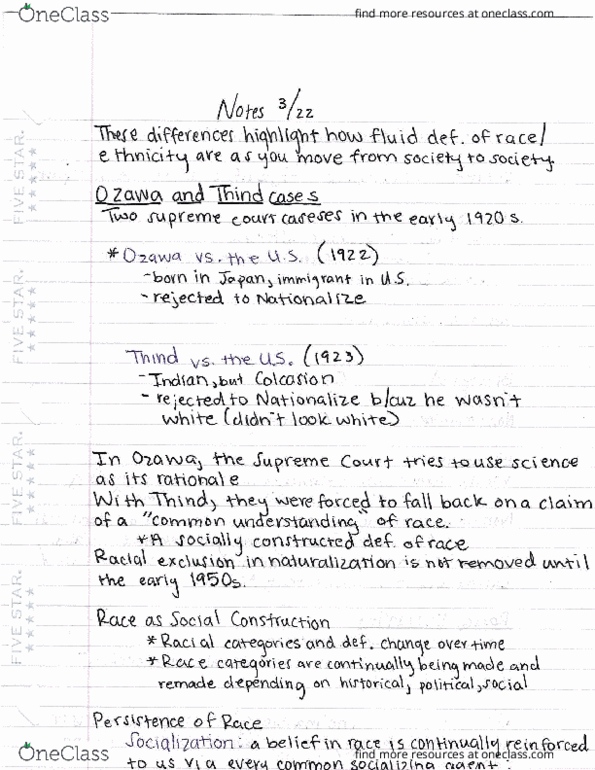 OneClass
find more resources at oneclass.com
Notes 3/22
These differences highlight how fluid def. of race/
ethnicity are as you move from society to society.
Ozawa and Thind cases
Two supreme court caseses in the early 1920s.
* Ozawa vs. the U.S. (1922)
- born in Japan, immigrant in U.S.
- rejected to Nationalize
Thind vs. the U.S. (1923)
- Indian, but Colcasion
- rejected to Nationalize b/cuz he wasn't
white (didn't look white)
In Ozawa, the Supreme Court tries to use science
as its rationale
With Thind, they were forced to fall back on a claim
of a "common understanding" of race.
* A socially constructed def. of race
Racial exclusion in naturalization is not removed until
the early 1950s.
Race as Social Construction
* Racial categories and def. change over time
* Race categories are continually being made and
remade depending on historical, political, social
Persistence of Race
Socialization: a belief in race is continually reinforced
to us via every common socializing agent:
FIVE STAR.
FIVE STAR.
FIVE STAR.
FIVE STAR.
OneClass
find more resources at oneclass.com